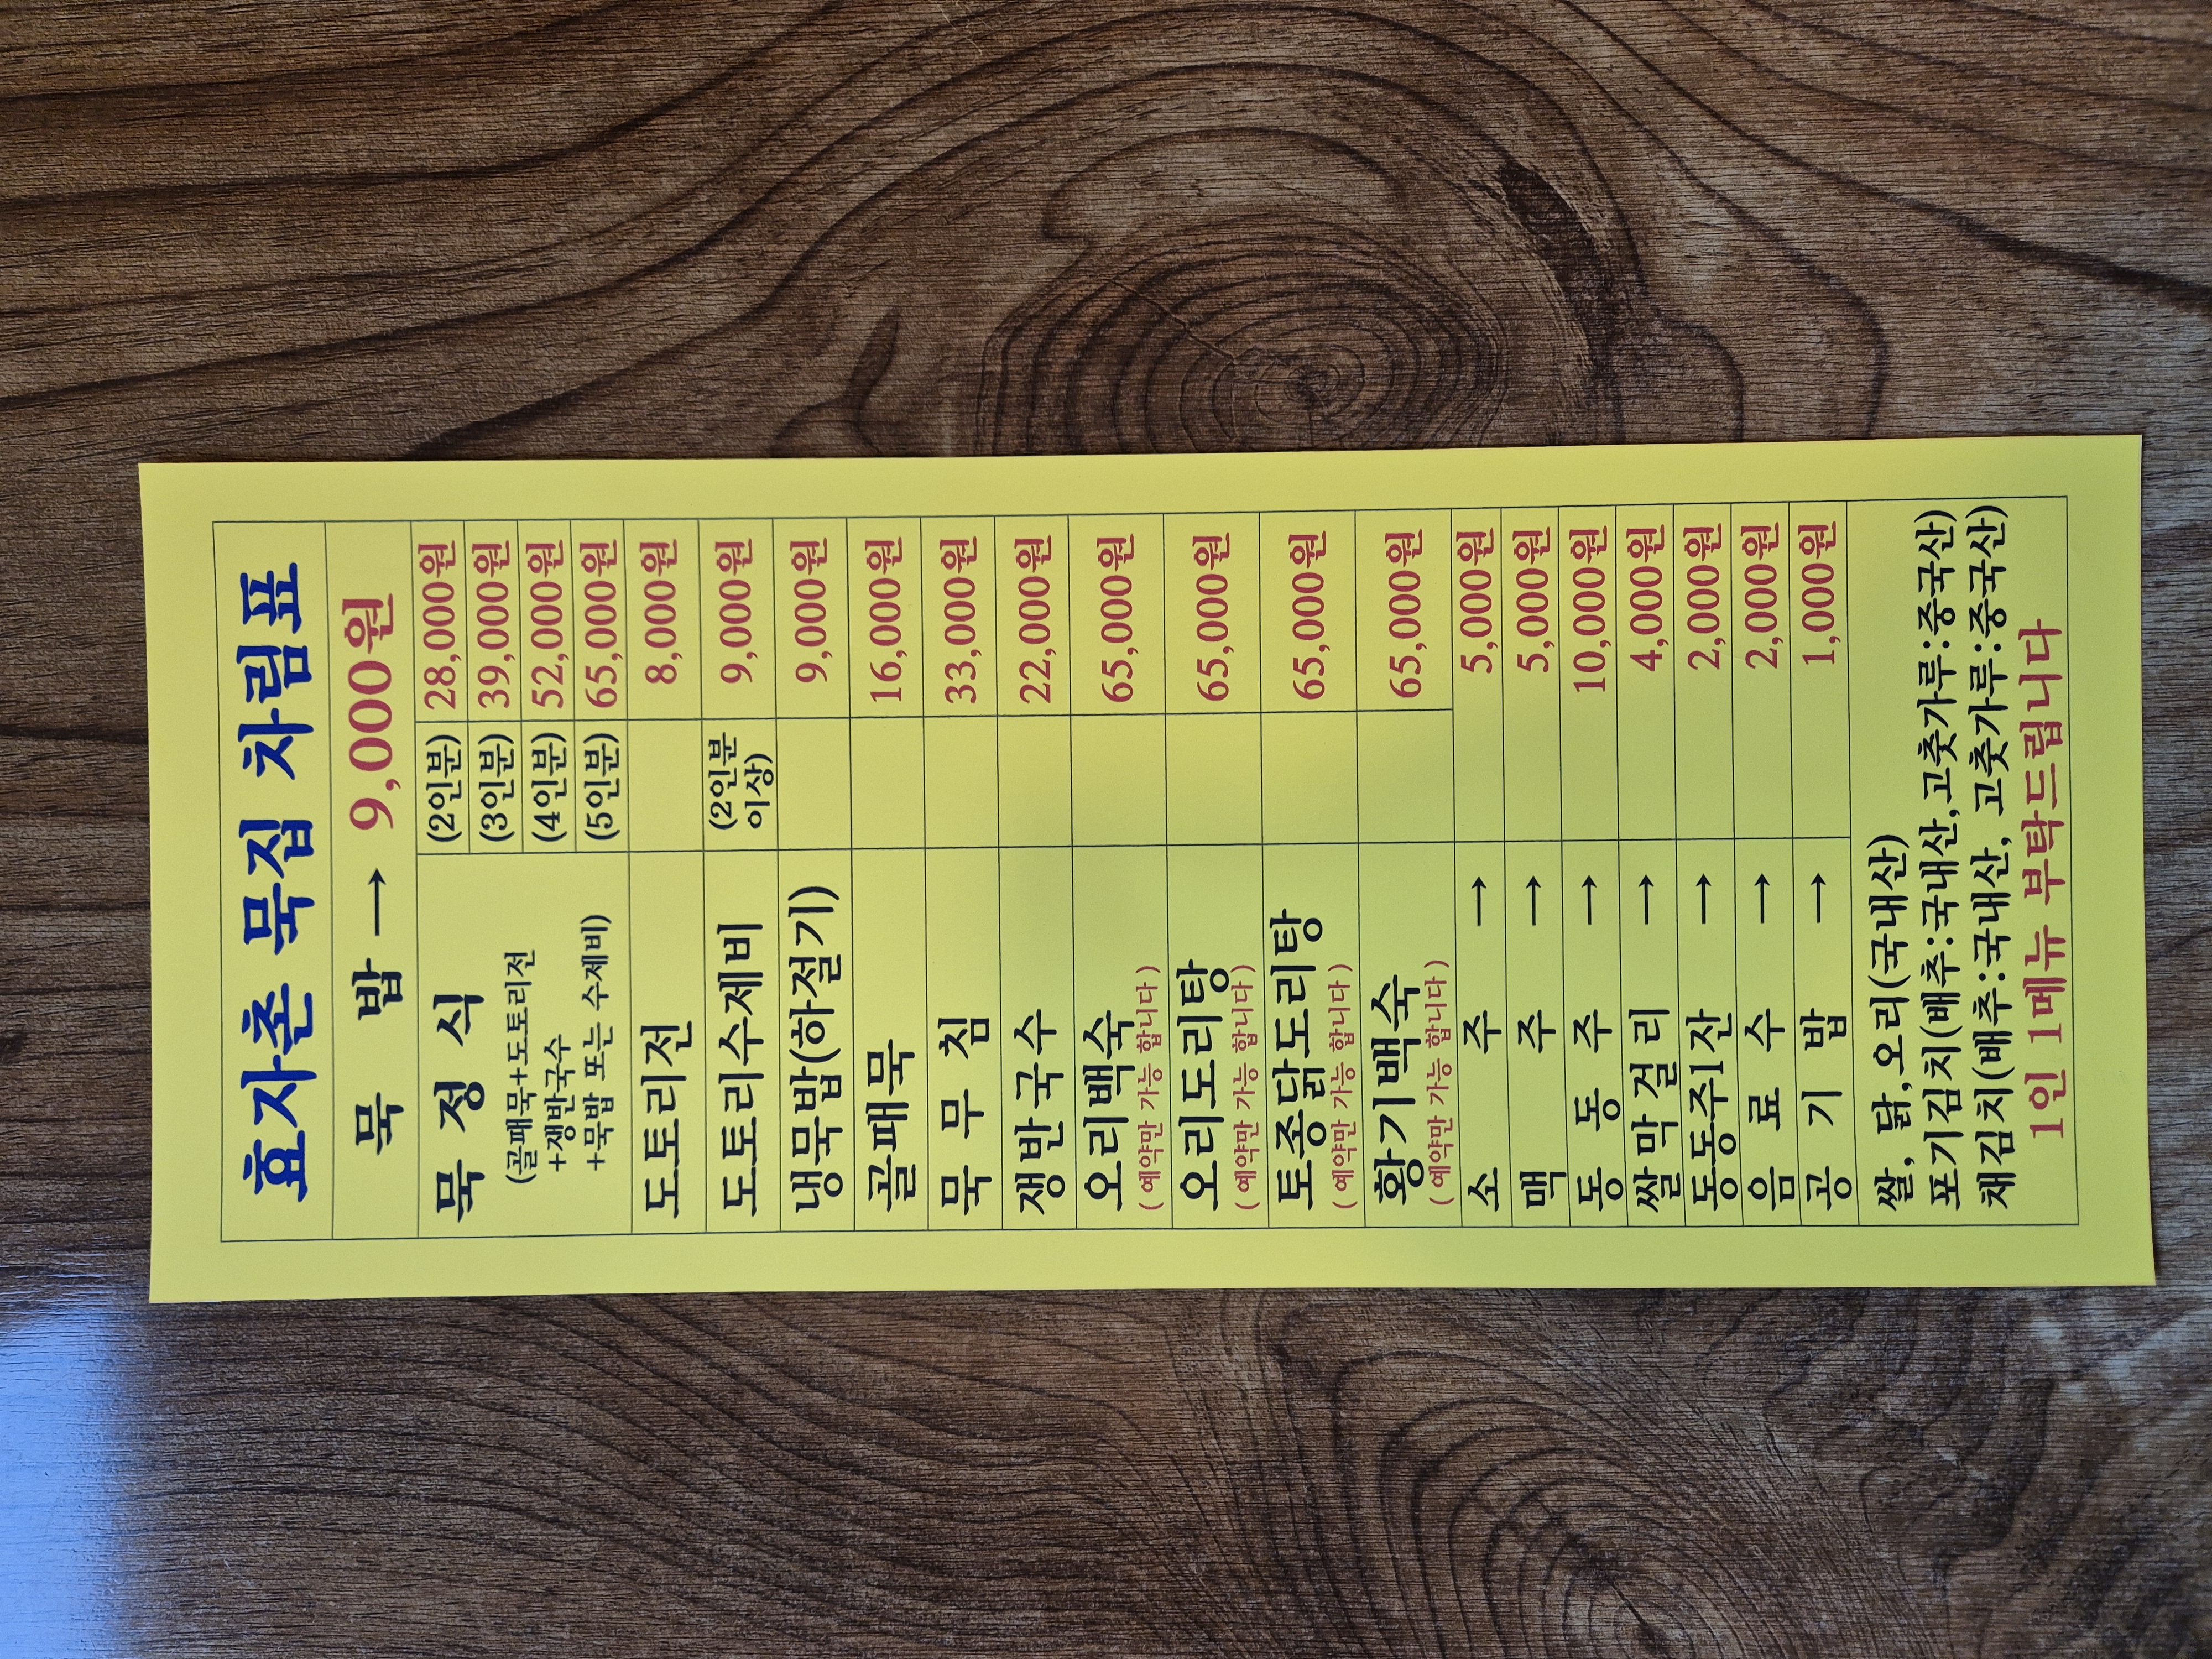 효자촌 묵집 차림표
묵 밥 → 9,000원
묵 정 식
(골패묵+도토리전
+쟁반국수
+묵밥 또는 수제비)
(2인분) 28,000원
(3인분) 39,000원
(4인분) 52,000원
(5인분) 65,000원
도토리전 8,000원
도토리수제비 (2인분 이상) 9,000원
냉묵밥(하절기) 9,000원
골패묵 16,000원
묵 무 침 33,000원
쟁반국수 22,000원
오리백숙 65,000원
( 예약만 가능 합니다 )
오리도리탕 65,000원
( 예약만 가능 합니다 )
토종닭도리탕 65,000원
( 예약만 가능 합니다 )
황기백숙 65,000원
( 예약만 가능 합니다 )
소 주 → 5,000원
맥 주 → 5,000원
동 동 주 → 10,000원
쌀 막 걸 리 → 4,000원
동동주1잔 → 2,000원
음 료 수 → 2,000원
공 기 밥 → 1,000원
쌀, 닭,오리(국내산)
포기김치(배추:국내산,고춧가루:중국산)
채김치(배추:국내산, 고춧가루:중국산)
1인 1메뉴 부탁드립니다